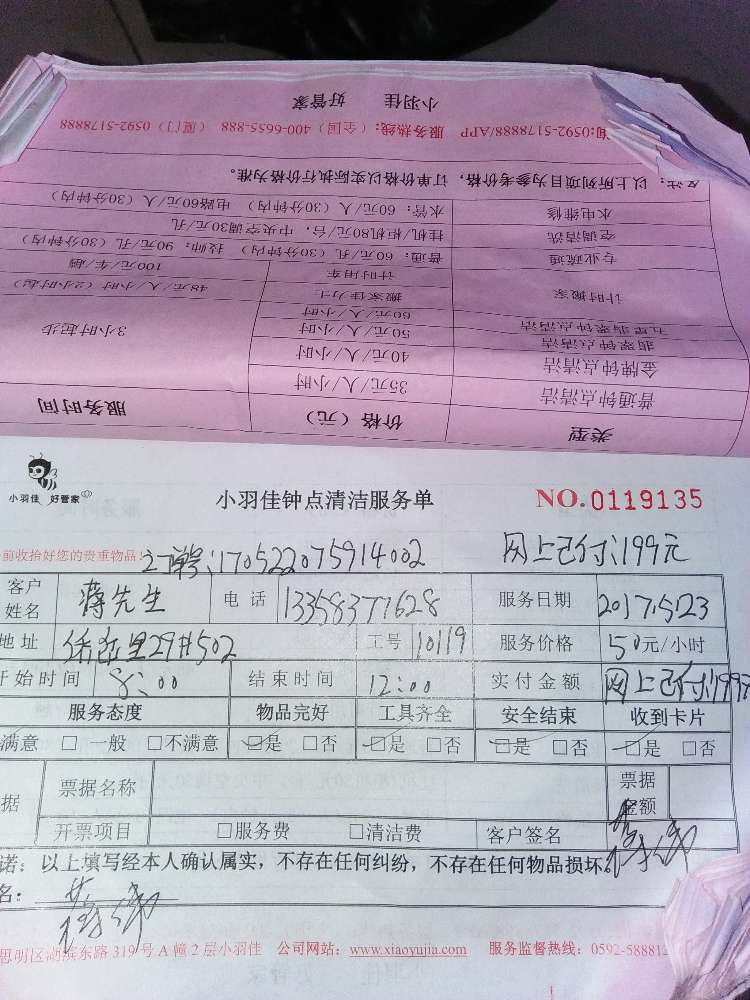 小羽佳 好管家
询:0592-5178888/APP 服务热线:(全国)400-6655-888 (厦门)0592-5178888
类型 价格(元) 服务时间
普通钟点清洁 35元/人/小时 3小时起步
金牌钟点清洁 40元/人/小时
翡翠钟点清洁 50元/人/小时
五星翡翠钟点清洁 60元/人/小时
计时搬家 搬家佳力士 48元/人/小时(2小时起)
计时用车 100元/车/趟
专业疏通 普通:60元/孔(30分钟内) 技师:90元/孔(30分钟内)
空调清洗 挂机/柜机80元/台,中央空调30元/孔
水电维修 水管:60元/人(30分钟内) 电路60元/人(30分钟内)
备注:以上所列项目为参考价格,订单价格以实际执行价格为准。
小羽佳 好管家
小羽佳钟点清洁服务单
NO.0119135
前收拾好您的贵重物品!
订单号:170522075914002 网上已付:199元
客户姓名 蒋先生 电话 13358377628 服务日期 2017.5.23
地址 29#502 工号 10119 服务价格 50元/小时
开始时间 8:00 结束时间 12:00 实付金额 网上已付:199元
服务态度 物品完好 工具齐全 安全结束 收到卡片
满意 □一般 □不满意 □是 □否 □是 □否 □是 □否 □是 □否
据 票据名称 票据金额
开票项目 □服务费 □清洁费 客户签名
诺:以上填写经本人确认属实,不存在任何纠纷,不存在任何物品损坏。
名:
思明区湖滨东路319号A幢2层小羽佳 公司网站:www.xiaoyujia.com 服务监督热线:0592-588812